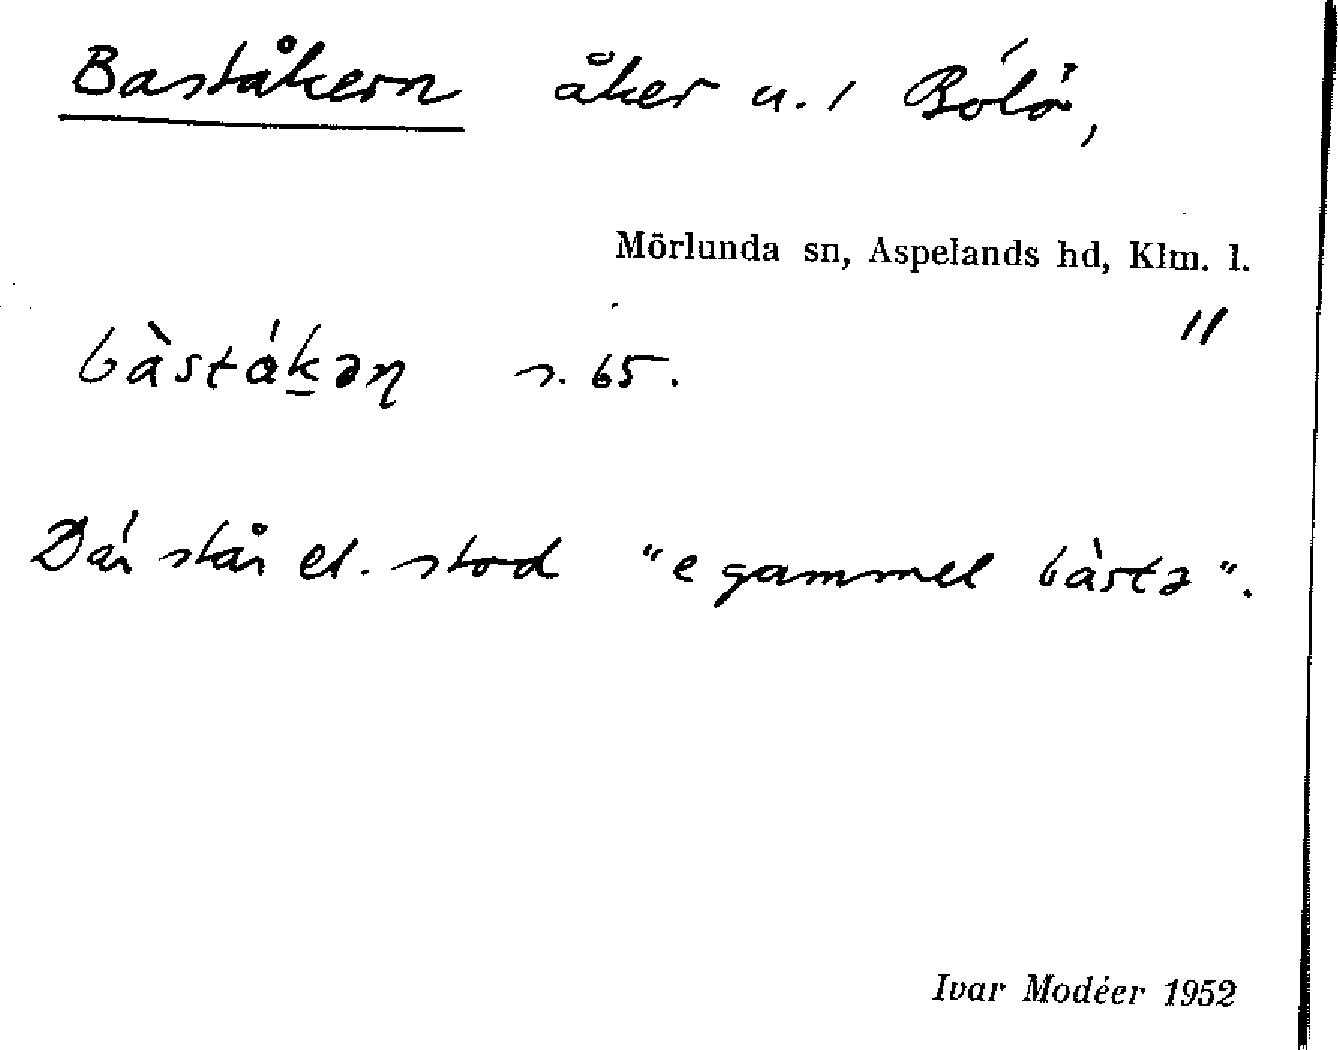 Baståkern åker u. 1 Bölö,
Mörlunda sn, Aspelands hd, Klm. l.
"
bàstákəɳ s. 65.
Där står el. stod "e gammel bàstə".
Ivar Modéer 1952